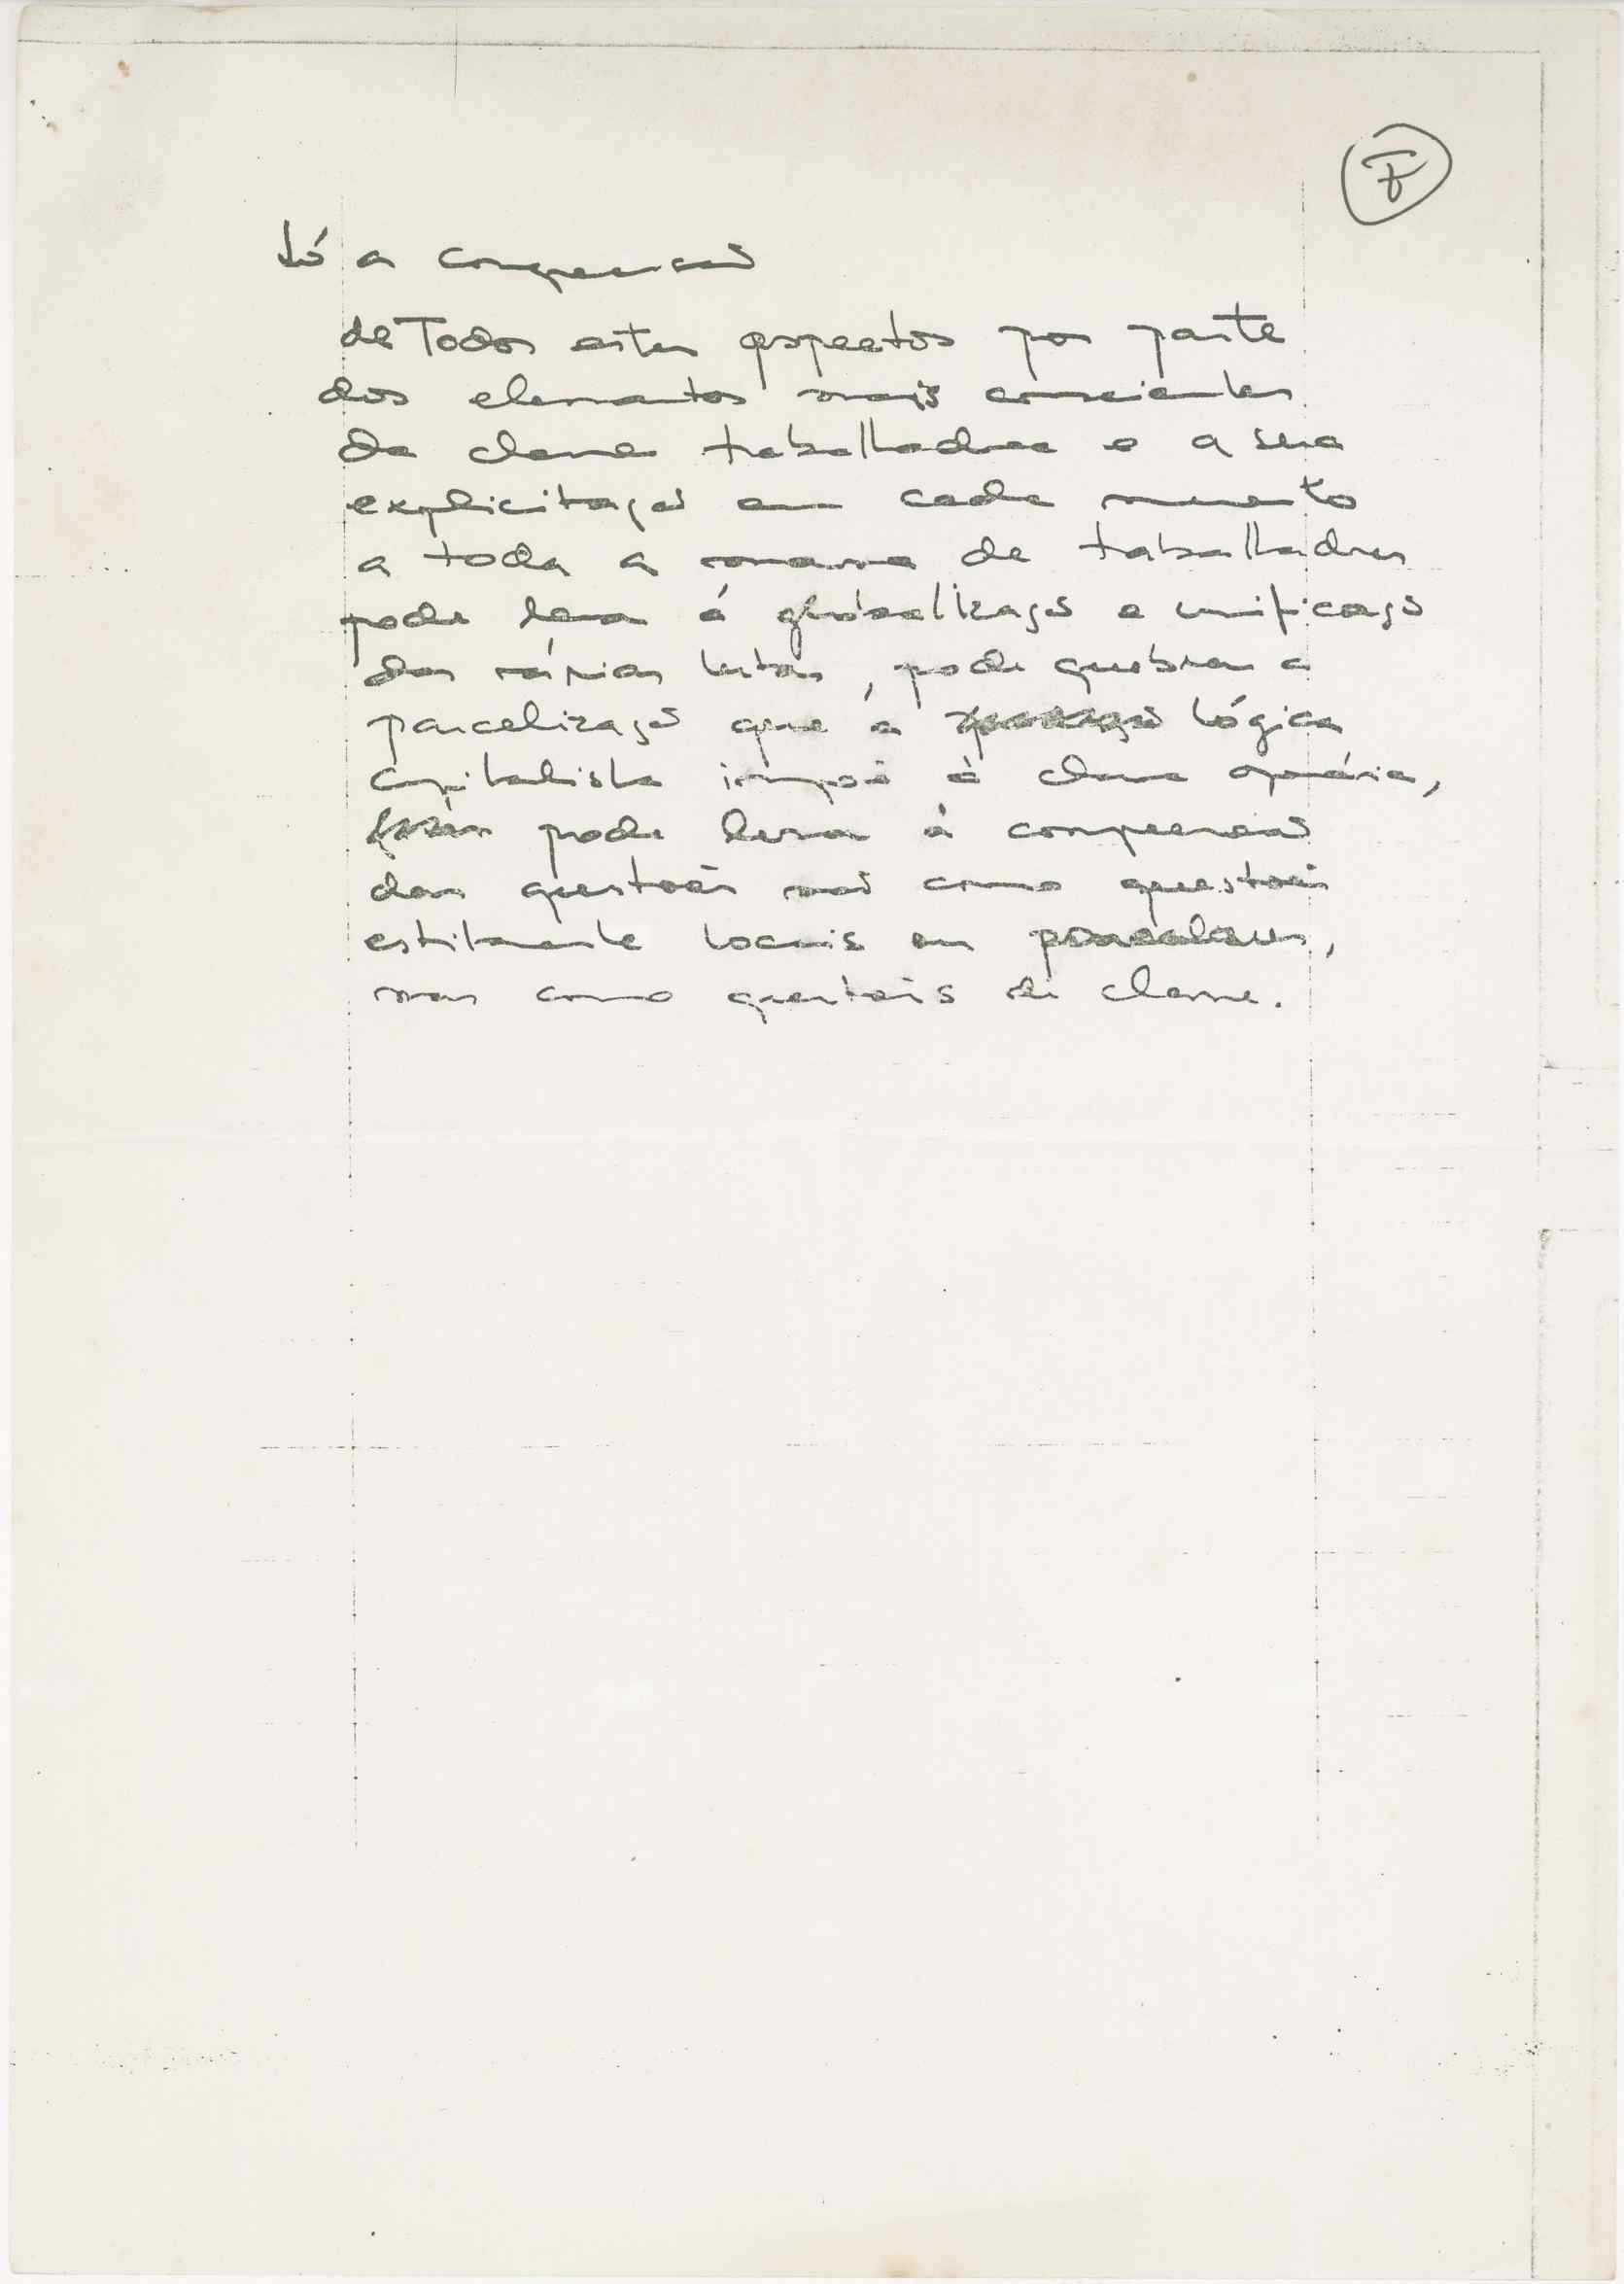 Só a compreensão
de Todos estes aspectos por parte
dos elementos mais conscientes
da classe trabalhadora e a sua
explicitação em cada momento
a toda a massa de trabalhadores
pode levar à globalização e unificação
das várias lutas, pode quebrar a
parcelização que a lógica
capitalista impõe à classe operária,
pode levar à compreensão
das questões não como questões
estritamente locais ou parcelares,
mas como questões de classe.